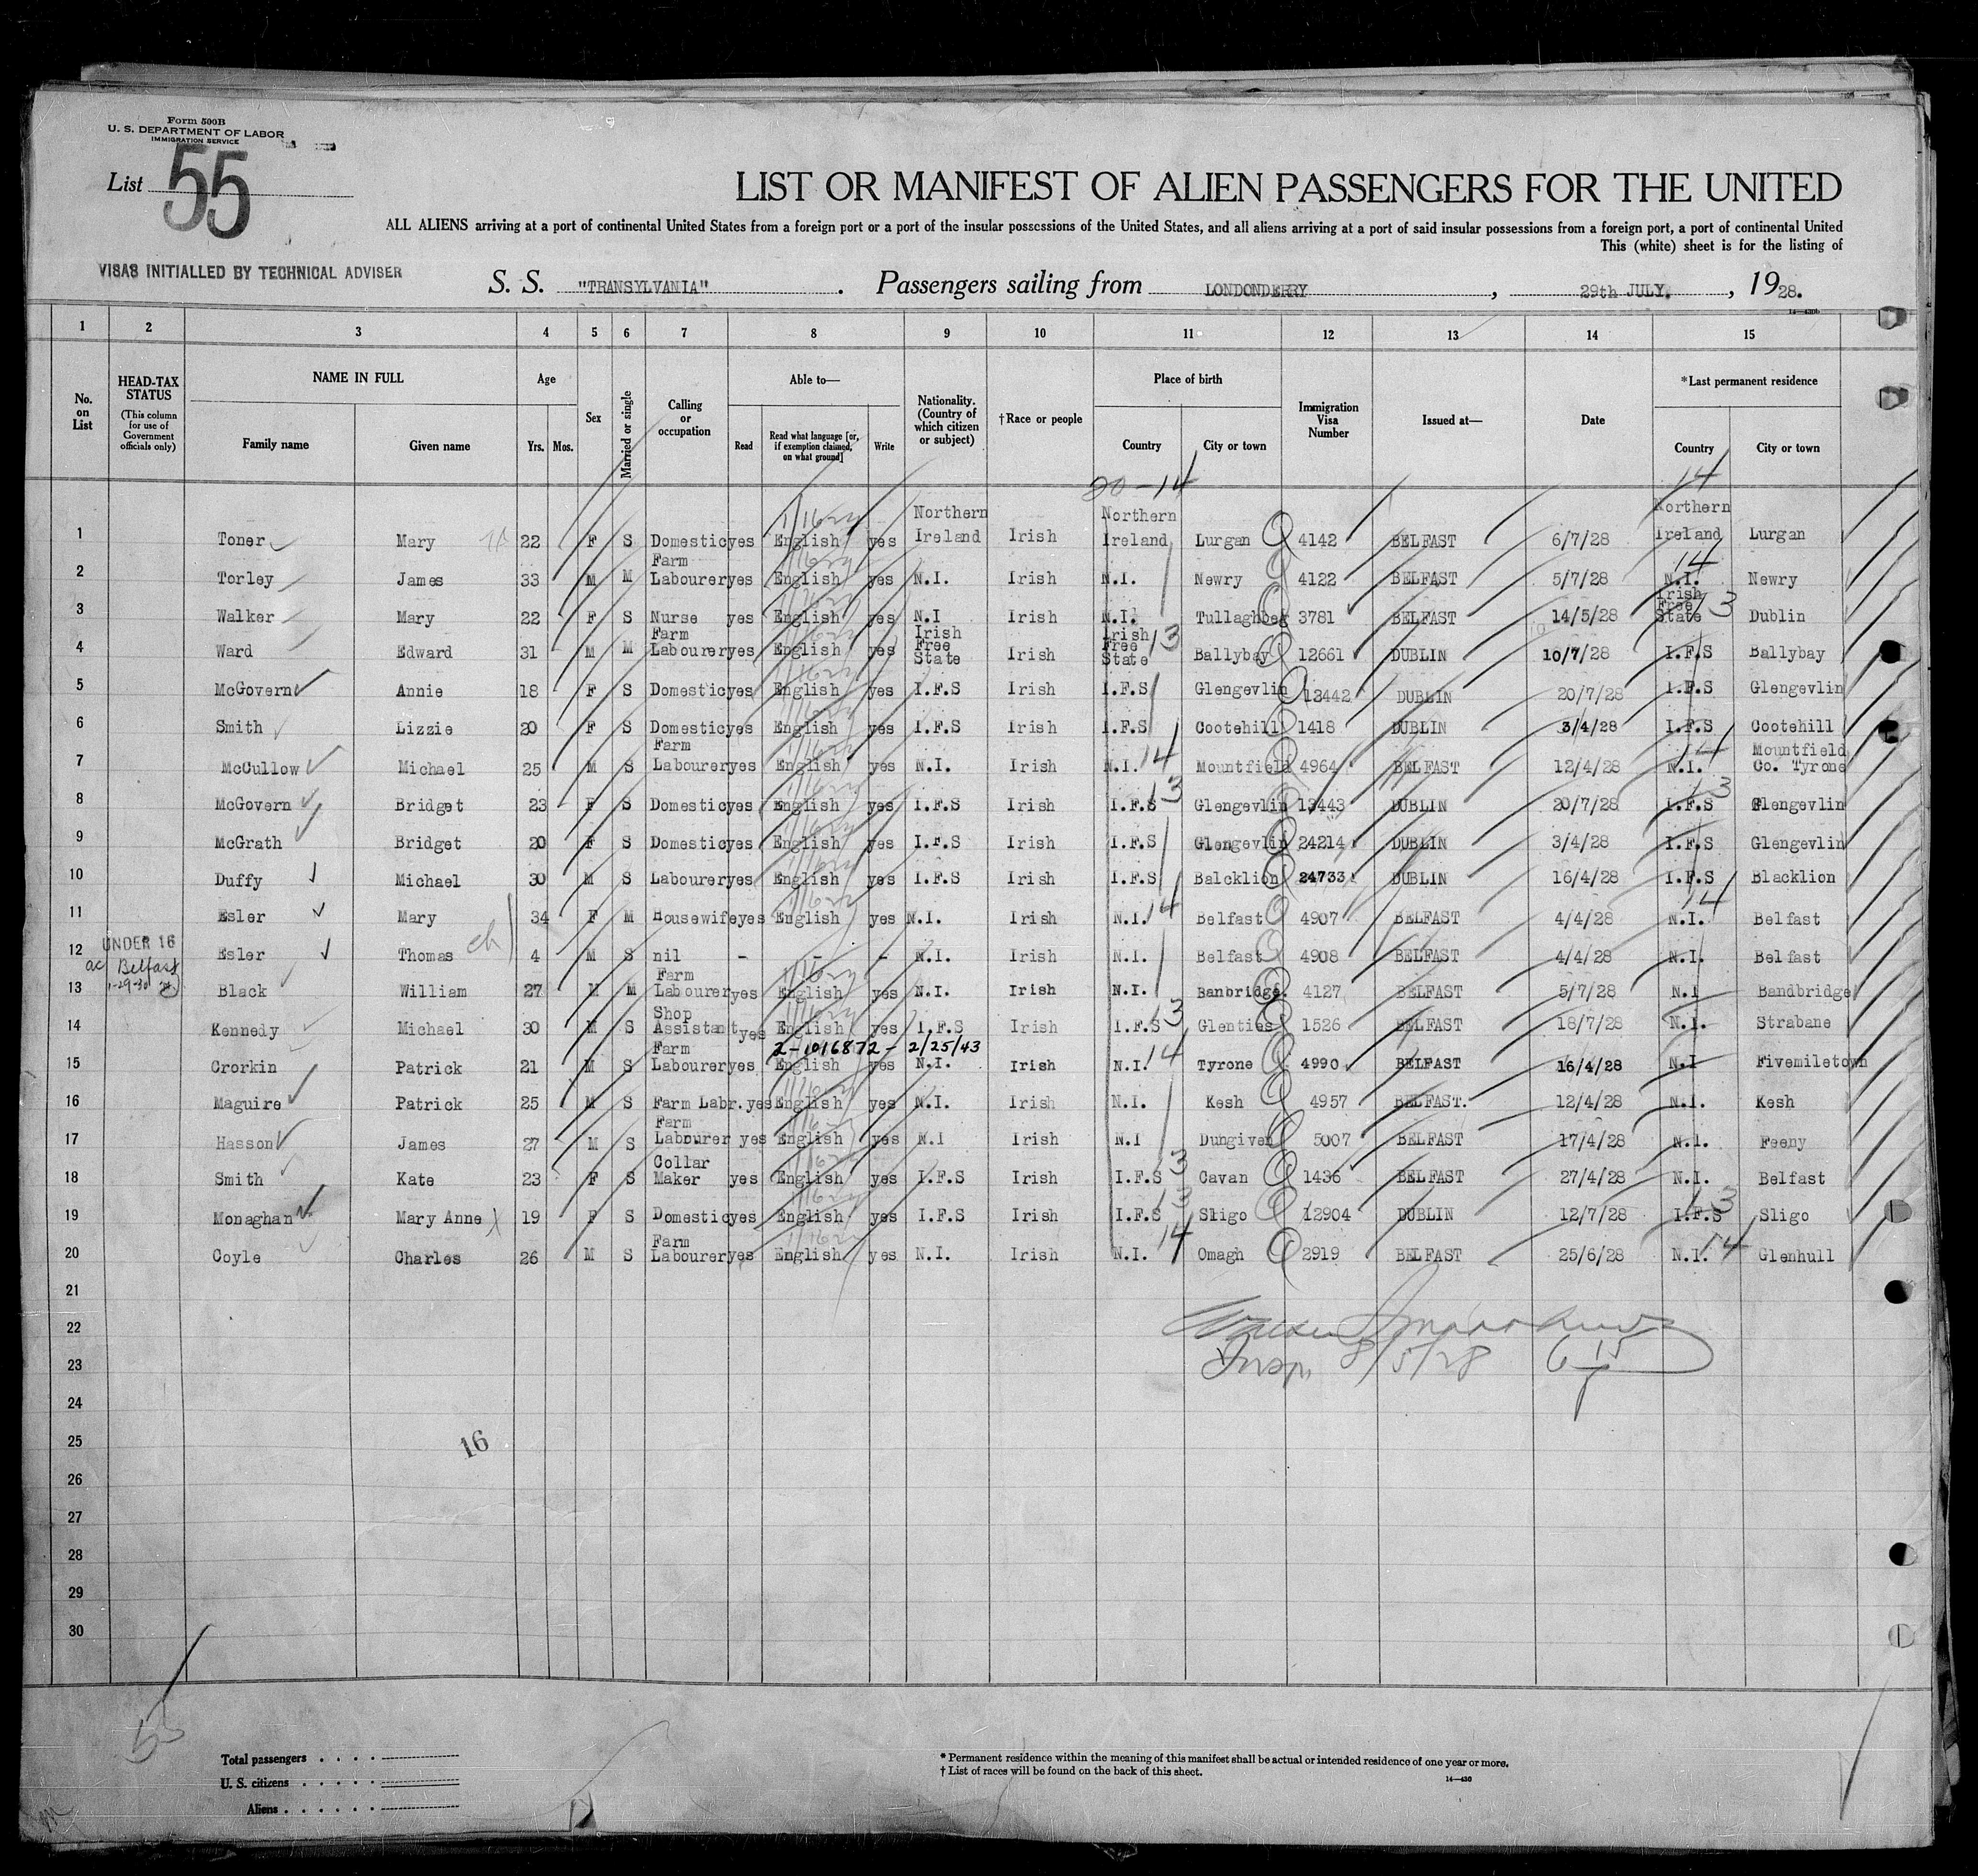 Form 500B
U. S. DEPARTMENT OF LABOR
IMMIGRATION SERVICE
List 55
LIST OR MANIFEST OF ALIEN PASSENGERS FOR THE UNITED
ALL ALIENS arriving at a port of continental United States from a foreign port or a port of the insular possessions of the United States, and all aliens arriving at a port of said insular possessions from a foreign port, a port of continental United
This (white) sheet is for the listing of
VISAS INITIALLED BY TECHNICAL ADVISER
S. S. "TRANSYLVANIA". Passengers sailing from LONDONDERRY, 29th JULY., 1928.
14—430b
1 2 3 4 5 6 7 8 9 10 11 12 13 14 15
No. on List
HEAD-TAX STATUS (This column for use of Government officials only)
NAME IN FULL
Family name Given name
Age
Yrs. Mos.
Sex
Married or single
Calling or occupation
Able to—
Read
Read what language [or, if exemption claimed, on what ground]
Write
Nationality. (Country of which citizen or subject)
†Race or people
Place of birth
Country City or town
Immigration Visa Number
Issued at—
Date
*Last permanent residence
Country City or town
20-14 14
1 Toner Mary 22 F S Domestic yes English yes Northern Ireland Irish Northern Ireland Lurgan 4142 BELFAST 6/7/28 Northern Ireland Lurgan
2 Torley James 33 M M Farm Labourer yes English yes N.I. Irish N.I. Newry 4122 BELFAST 5/7/28 N.I. 14 Newry
3 Walker Mary 22 F S Nurse yes English yes N.I Irish N.I. Tullaghbeg 3781 BELFAST 14/5/28 Irish Free State 13 Dublin
4 Ward Edward 31 M M Farm Labourer yes English yes Irish Free State Irish Irish Free State 13 Ballybay 12661 DUBLIN 10/7/28 I.F.S Ballybay
5 McGovern Annie 18 F S Domestic yes English yes I.F.S Irish I.F.S Glengevlin 13442 DUBLIN 20/7/28 I.F.S Glengevlin
6 Smith Lizzie 20 F S Domestic yes English yes I.F.S Irish I.F.S Cootehill 1418 DUBLIN 3/4/28 I.F.S Cootehill
7 McCullow Michael 25 M S Farm Labourer yes English yes N.I. Irish N.I. 14 Mountfield 4964 BELFAST 12/4/28 N.I. 14 Mountfield Co. Tyrone
8 McGovern Bridget 23 F S Domestic yes English yes I.F.S Irish I.F.S 13 Glengevlin 13443 DUBLIN 20/7/28 I.F.S 13 Glengevlin
9 McGrath Bridget 20 F S Domestic yes English yes I.F.S Irish I.F.S Glengevlin 24214 DUBLIN 3/4/28 I.F.S Glengevlin
10 Duffy Michael 30 M S Labourer yes English yes I.F.S Irish I.F.S Balcklion 24733 DUBLIN 16/4/28 I.F.S Blacklion
11 Esler Mary 34 F M Housewife yes English yes N.I. Irish N.I. 14 Belfast 4907 BELFAST 4/4/28 N.I. 14 Belfast
12 UNDER 16 Esler Thomas ch 4 M S nil - - - N.I. Irish N.I. Belfast 4908 BELFAST 4/4/28 N.I. Belfast
Belfast
13 1-29-30 Black William 27 M M Farm Labourer yes English yes N.I. Irish N.I. Banbridge. 4127 BELFAST 5/7/28 N.I Bandbridge
14 Kennedy Michael 30 M S Shop Assistant yes English yes I.F.S Irish I.F.S 13 Glenties 1526 BELFAST 18/7/28 N.I. Strabane
2-1016872- 2/25/43
15 Crorkin Patrick 21 M S Farm Labourer yes English yes N.I. Irish N.I. 14 Tyrone 4990 BELFAST 16/4/28 N.I Fivemiletown
16 Maguire Patrick 25 M S Farm Labr. yes English yes N.I. Irish N.I. Kesh 4957 BELFAST. 12/4/28 N.I. Kesh
17 Hasson James 27 M S Farm Labourer yes English yes N.I Irish N.I Dungiven 5007 BELFAST 17/4/28 N.I. Feeny
18 Smith Kate 23 F S Collar Maker yes English yes I.F.S Irish I.F.S 3 Cavan 1436 BELFAST 27/4/28 N.I. Belfast
19 Monaghan Mary Anne X 19 F S Domestic yes English yes I.F.S Irish I.F.S 13 Sligo 12904 DUBLIN 12/7/28 I.F.S 13 Sligo
20 Coyle Charles 26 M S Farm Labourer yes English yes N.I. Irish N.I. 14 Omagh 2919 BELFAST 25/6/28 N.I. 14 Glenhull
21
22
23 Insp. 8/5/28
24
25 16
26
27
28
29
30
Total passengers
U. S. citizens
Aliens
* Permanent residence within the meaning of this manifest shall be actual or intended residence of one year or more.
† List of races will be found on the back of this sheet.
14—430